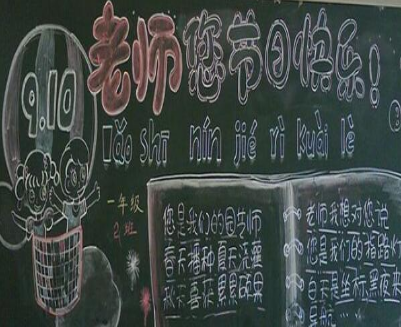 9.10
老师您节日快乐！
lǎo shī nín jié rì kuài lè
一年级
2班
您是我们的园艺师
春天播种夏天浇灌
老师我想对您说
您是我们的指路灯
白天是坐标黑夜来